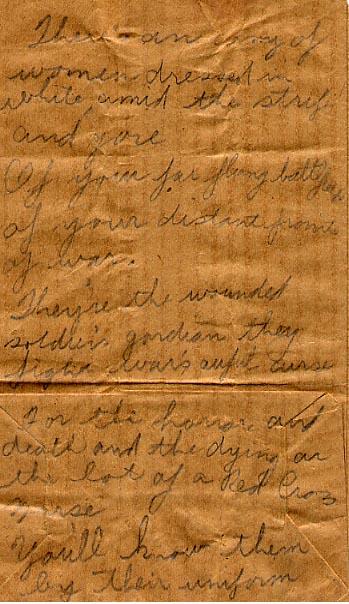 There's an army of
women dressed in
white, amid the strife
and gore
Of your far flung battle
of your distant fronts
of war.
They're the wounded
soldiers gordian they
fight war's awful curse
For the horror and
death and the dying are
the lot of a Red Cross
Nurse
You'll know them
by their uniform